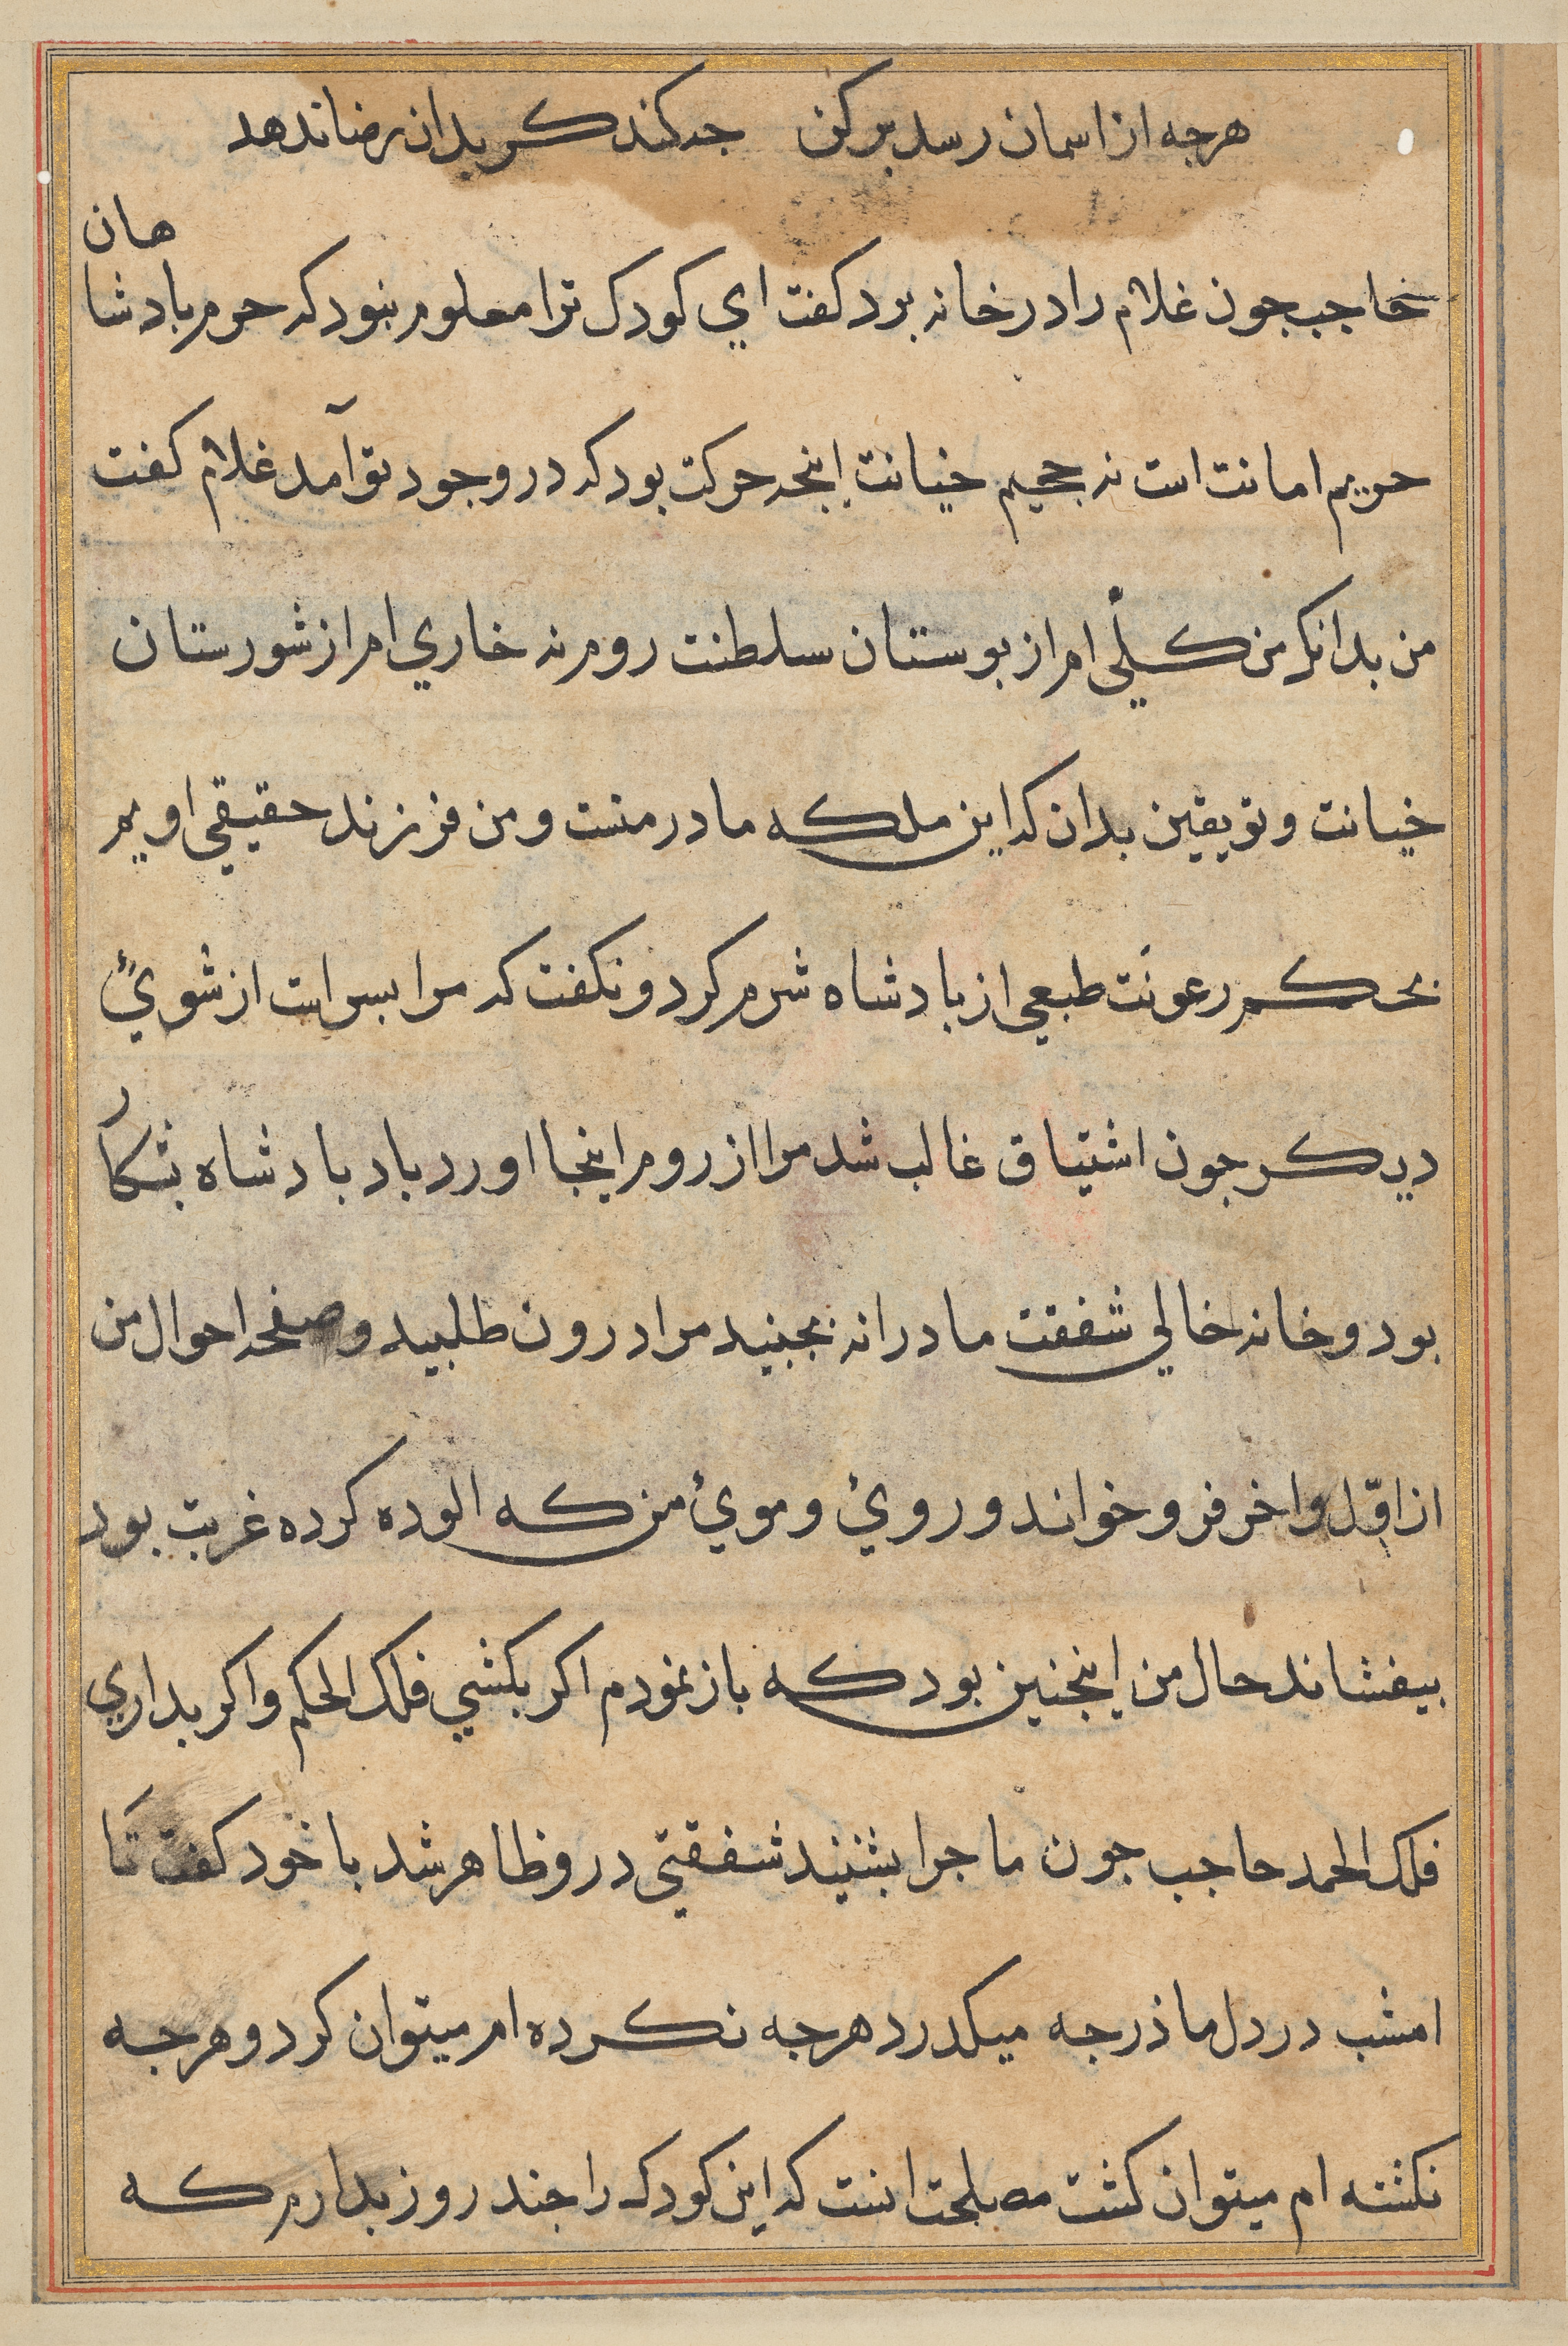 هرجه از اسمان رسد بر کن جه کند کر بدان رضا ندهد
حاجب جون غلام را در خانه برد کفت اي کودک ترا معلوم نبود که حرم بادشاهان
حریم امانت است نه جحیم خیانت اینجه حرکت بود که در وجود تو آمد غلام کفت
من بدانکه من کلي ام از بوستان سلطنت روم نه خاري ام از شورستان
خیانت و تو یقین بدان که این ملکه مادر منست و من فرزند حقیقي اویم
بحکم رعونت طبعي از بادشاه شرم کرد و نکفت که مرا بسر است از شوئ
دیکر جون اشتیاق غالب شد مرا از روم اینجا اورد باد بادشاه بشکار
بود و خانه خالي شفقت مادرانه بجنبید مرا درون طلبید و صفحه احوال من
از اوّل و اخر فرو خواند و روئ و موئ من که الوده کرده غربت بود
بیفشاند حال من اینجنین بود که باز نمودم اکر بکشي فلک الحکم و اکر بداري
فلک الحمد حاجب جون ماجرا بشنید شفقتي درو ظاهر شد با خود کفت تا
امشب در دل ماذر جه میکدرد هرجه نکرده ام میتوان کرد و هرجه
نکشته ام میتوان کشت مصلحت انست که این کودک را جند روز بدارم که